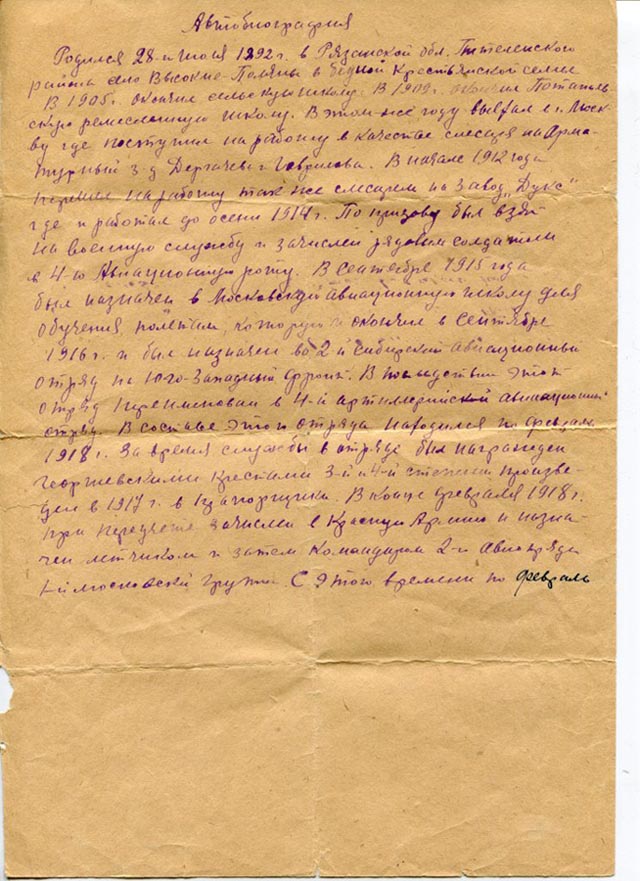 Автобиография
Родился 28-и Июля 1892 г. в Рязанской обл. Пителенского
района село Высокие-Поляны в бедной Крестьянской семье
В 1905г. окончил сельскую школу. В 1909г. окончил
скую ремесленную школу. В этом же году выехал в г. Моск-
ву где поступил на работу в качестве слесаря на Арма-
турный з-д Дергачева и Гаврилова. В начале 1912 года
перешел на работу так же слесарем на завод „Дукс"
где и работал до осени 1914 г. По призову был взят
на военную службу и зачислен рядовым солдатом
в 4-ю Авиационную роту. В сентябре 1915 года
был назначен в Московскую авиационную школу для
обучения полетам, которую и окончил в сентябре
1916 г. и был назначен во 2-й Сибирский авиационный
отряд на Юго-Западный фронт. В последствии этот
отряд переименован в 4-й артиллерийский авиационный
отряд. В составе этого отряда находился по февраль
1918 г. За время службы в отряде был награжден
Георгиевскими крестами 3-й и 4-й степени произве-
ден в 1917 г. в прапорщики. В конце февраля 1918 г.
при зачислен в Красную Армию и назна-
чен летчиком и затем Командиром 2-го Авиаотряда
1-й московской группы С этого времени по февраль